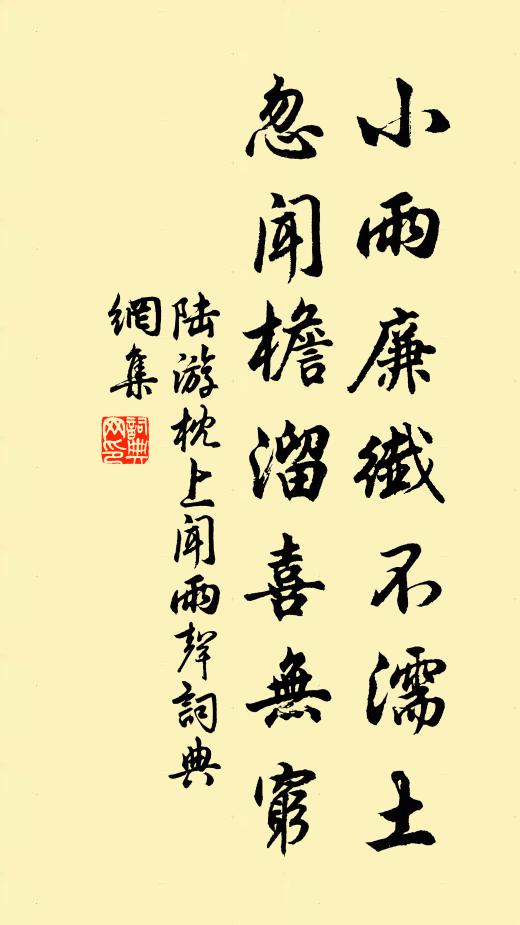 小雨廉纖不濡土
忽聞檐溜喜無窮
陆游枕上闻雨聲詞典
網集
詞典
网印